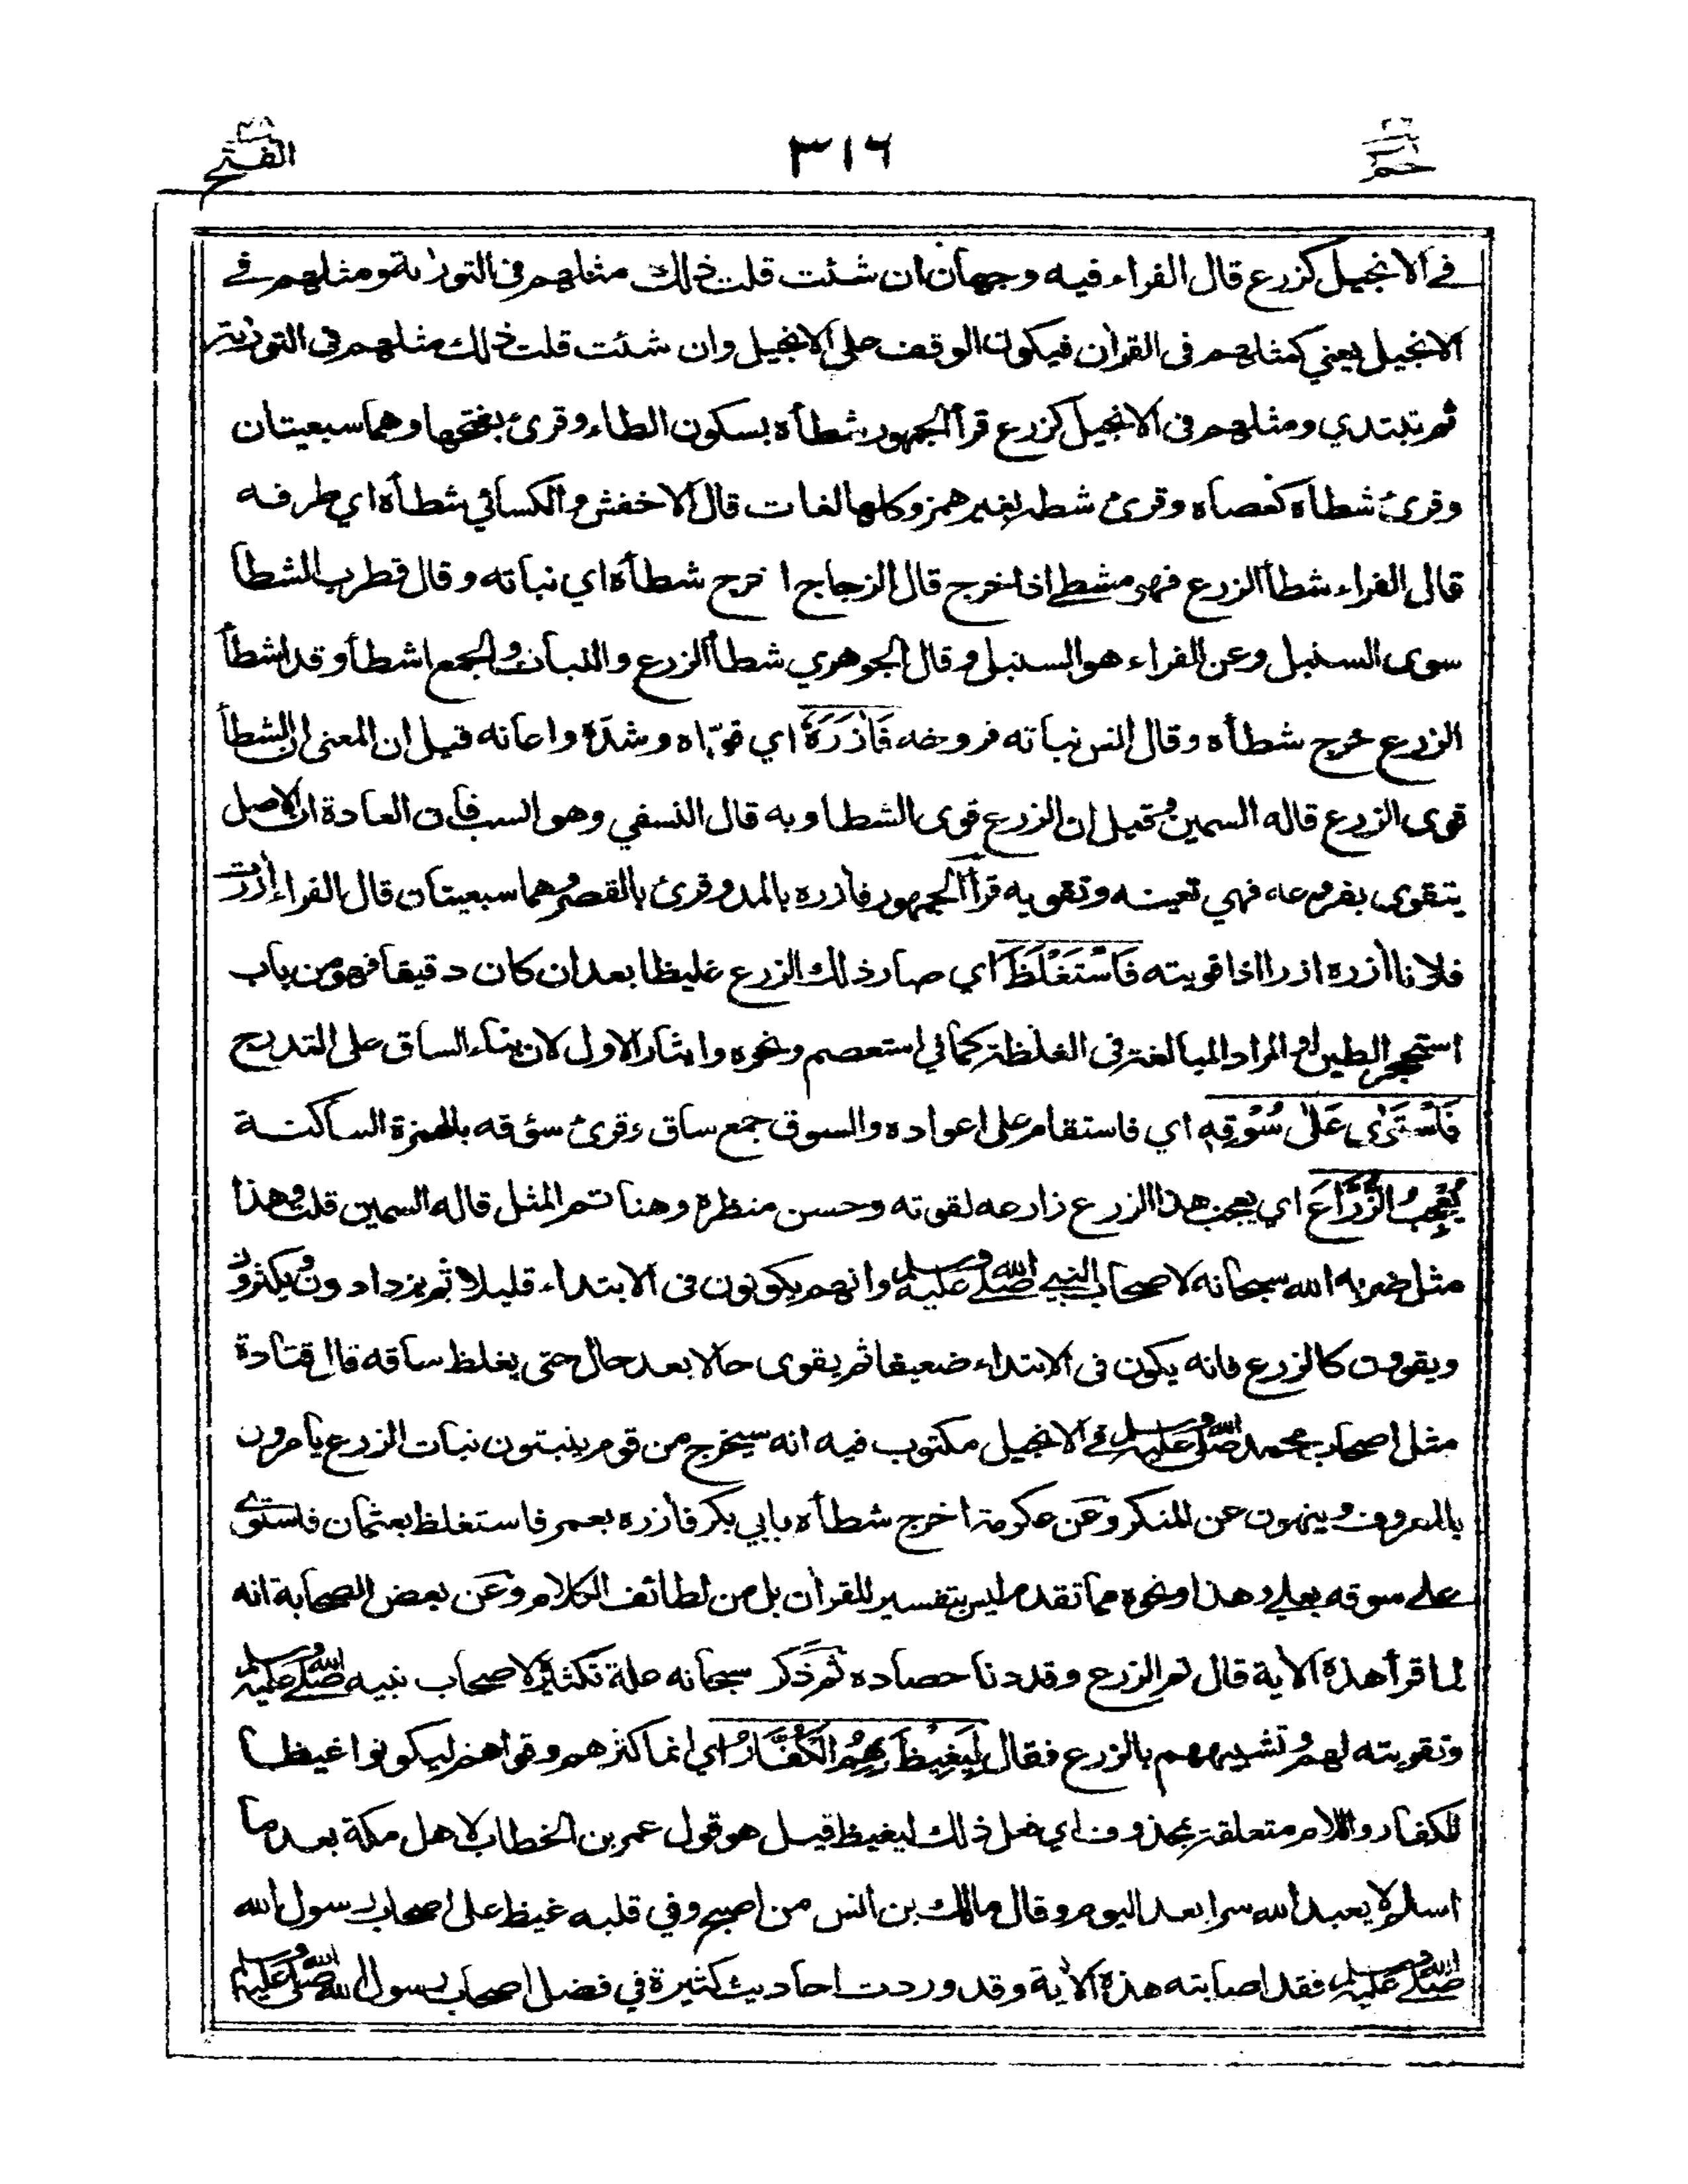 حم ٢٦
٣١٦
الفتح ٤٨
في الانجيل كزرع قال الفراء فيه وجهان ان شئت قلت ذلك مثلهم في التورٰىة ومثلهم في
الانجيل يعني كمثلهم في القرآن فيكون الوقف على الانجيل وان شئت قلت ذلك مثلهم في التورٰىة
ثم تبتدي ومثلهم في الانجيل كزرع قرأ الجمهور شطأه بسكون الطاء وقرئ بفتحها وهما سبعيتان
وقرئ شطاه كعصاه وقرئ شطه بغير همز وكلها لغات قال الاخفش والكسائي شطأه اي طرفه
قال الفراء شطأ الزرع فهو مشطئ اذا خرج قال الزجاج اخرج شطأه اي نباته وقال قطرب الشطأ
سوى السنبل وعن الفراء هو السنبل وقال الجوهري شطأ الزرع والنبات والجمع اشطأ وقد اشطأ
الزرع خرج شطأه وقال انس نباته فروخه فَاٰزَرَهٗ اي قوّاه وشدّه واعانه قيل ان المعنى ان الشطأ
قوى الزرع قاله السمين وقيل ان الزرع قوى الشطا وبه قال النسفي وهو انسب فان العادة ان الاصل
يتقوى بفروعه فهي تعينه وتقويه قرأ الجمهور فأزره بالمد وقرئ بالقصر وهما سبعيتان قال الفراء أزرت
فلانا أزره ازرا اذا قويته فَاسْتَغْلَظَ اي صار ذلك الزرع غليظا بعد ان كان دقيقا فهو من باب
استحجر الطين او المراد المبالغة في الغلظة كما في استعصم ونحوه وايثار الاول لان بناء الساق على التدريج
فَاسْتَوٰى عَلٰى سُوْقِهٖ اي فاستقام على اعواده والسوق جمع ساق وقرئ سؤقه بالهمزة الساكنة
يُعْجِبُ الزُّرَّاعَ اي يعجب هذا الزرع زارعه لقوته وحسن منظره وهنا تم المثل قاله السمين قلت وهذا
مثل ضربه الله سبحانه لاصحاب النبي صلى الله عليه وسلم وانهم يكونون في الابتداء قليلا ثم يزدادون ويكثرون
ويقوون كالزرع فانه يكون في الابتداء ضعيفا ثم يقوى حالا بعد حال حتى يغلظ ساقه قال قتادة
مثل اصحاب محمد صلى الله عليه وسلم في الانجيل مكتوب فيه انه سيخرج من قوم ينبتون نبات الزرع يأمرون
بالمعروف وينهون عن المنكر وعن عكرمة اخرج شطأه بابي بكر فأزره بعمر فاستغلظ بعثمان فاستوى
على سوقه بعلي وهذا ونحوه مما تقدم ليس بتفسير للقرآن بل من لطائف الكلام وعن بعض الصحابة انه
لما قرأ هذه الآية قال تم الزرع وقد دنا حصاده ثم ذكر سبحانه علة تكثيره لاصحاب نبيه صلى الله عليه وسلم
وتقويته لهم وتشبيههم بالزرع فقال لِيَغِيْظَ بِهِمُ الْكُفَّارَ اي انما كثرهم وقواهم ليكونوا غيظا
للكفار واللام متعلقة بمحذوف اي فعل ذلك ليغيظ قيل هو قول عمر بن الخطاب لاهل مكة بعد ما
اسلم لا يعبد الله سرا بعد اليوم وقال مالك بن انس من اصبح وفي قلبه غيظ على اصحاب رسول الله
صلى الله عليه وسلم فقد اصابته هذه الآية وقد وردت احاديث كثيرة في فضل اصحاب رسول الله صلى الله عليه وسلم